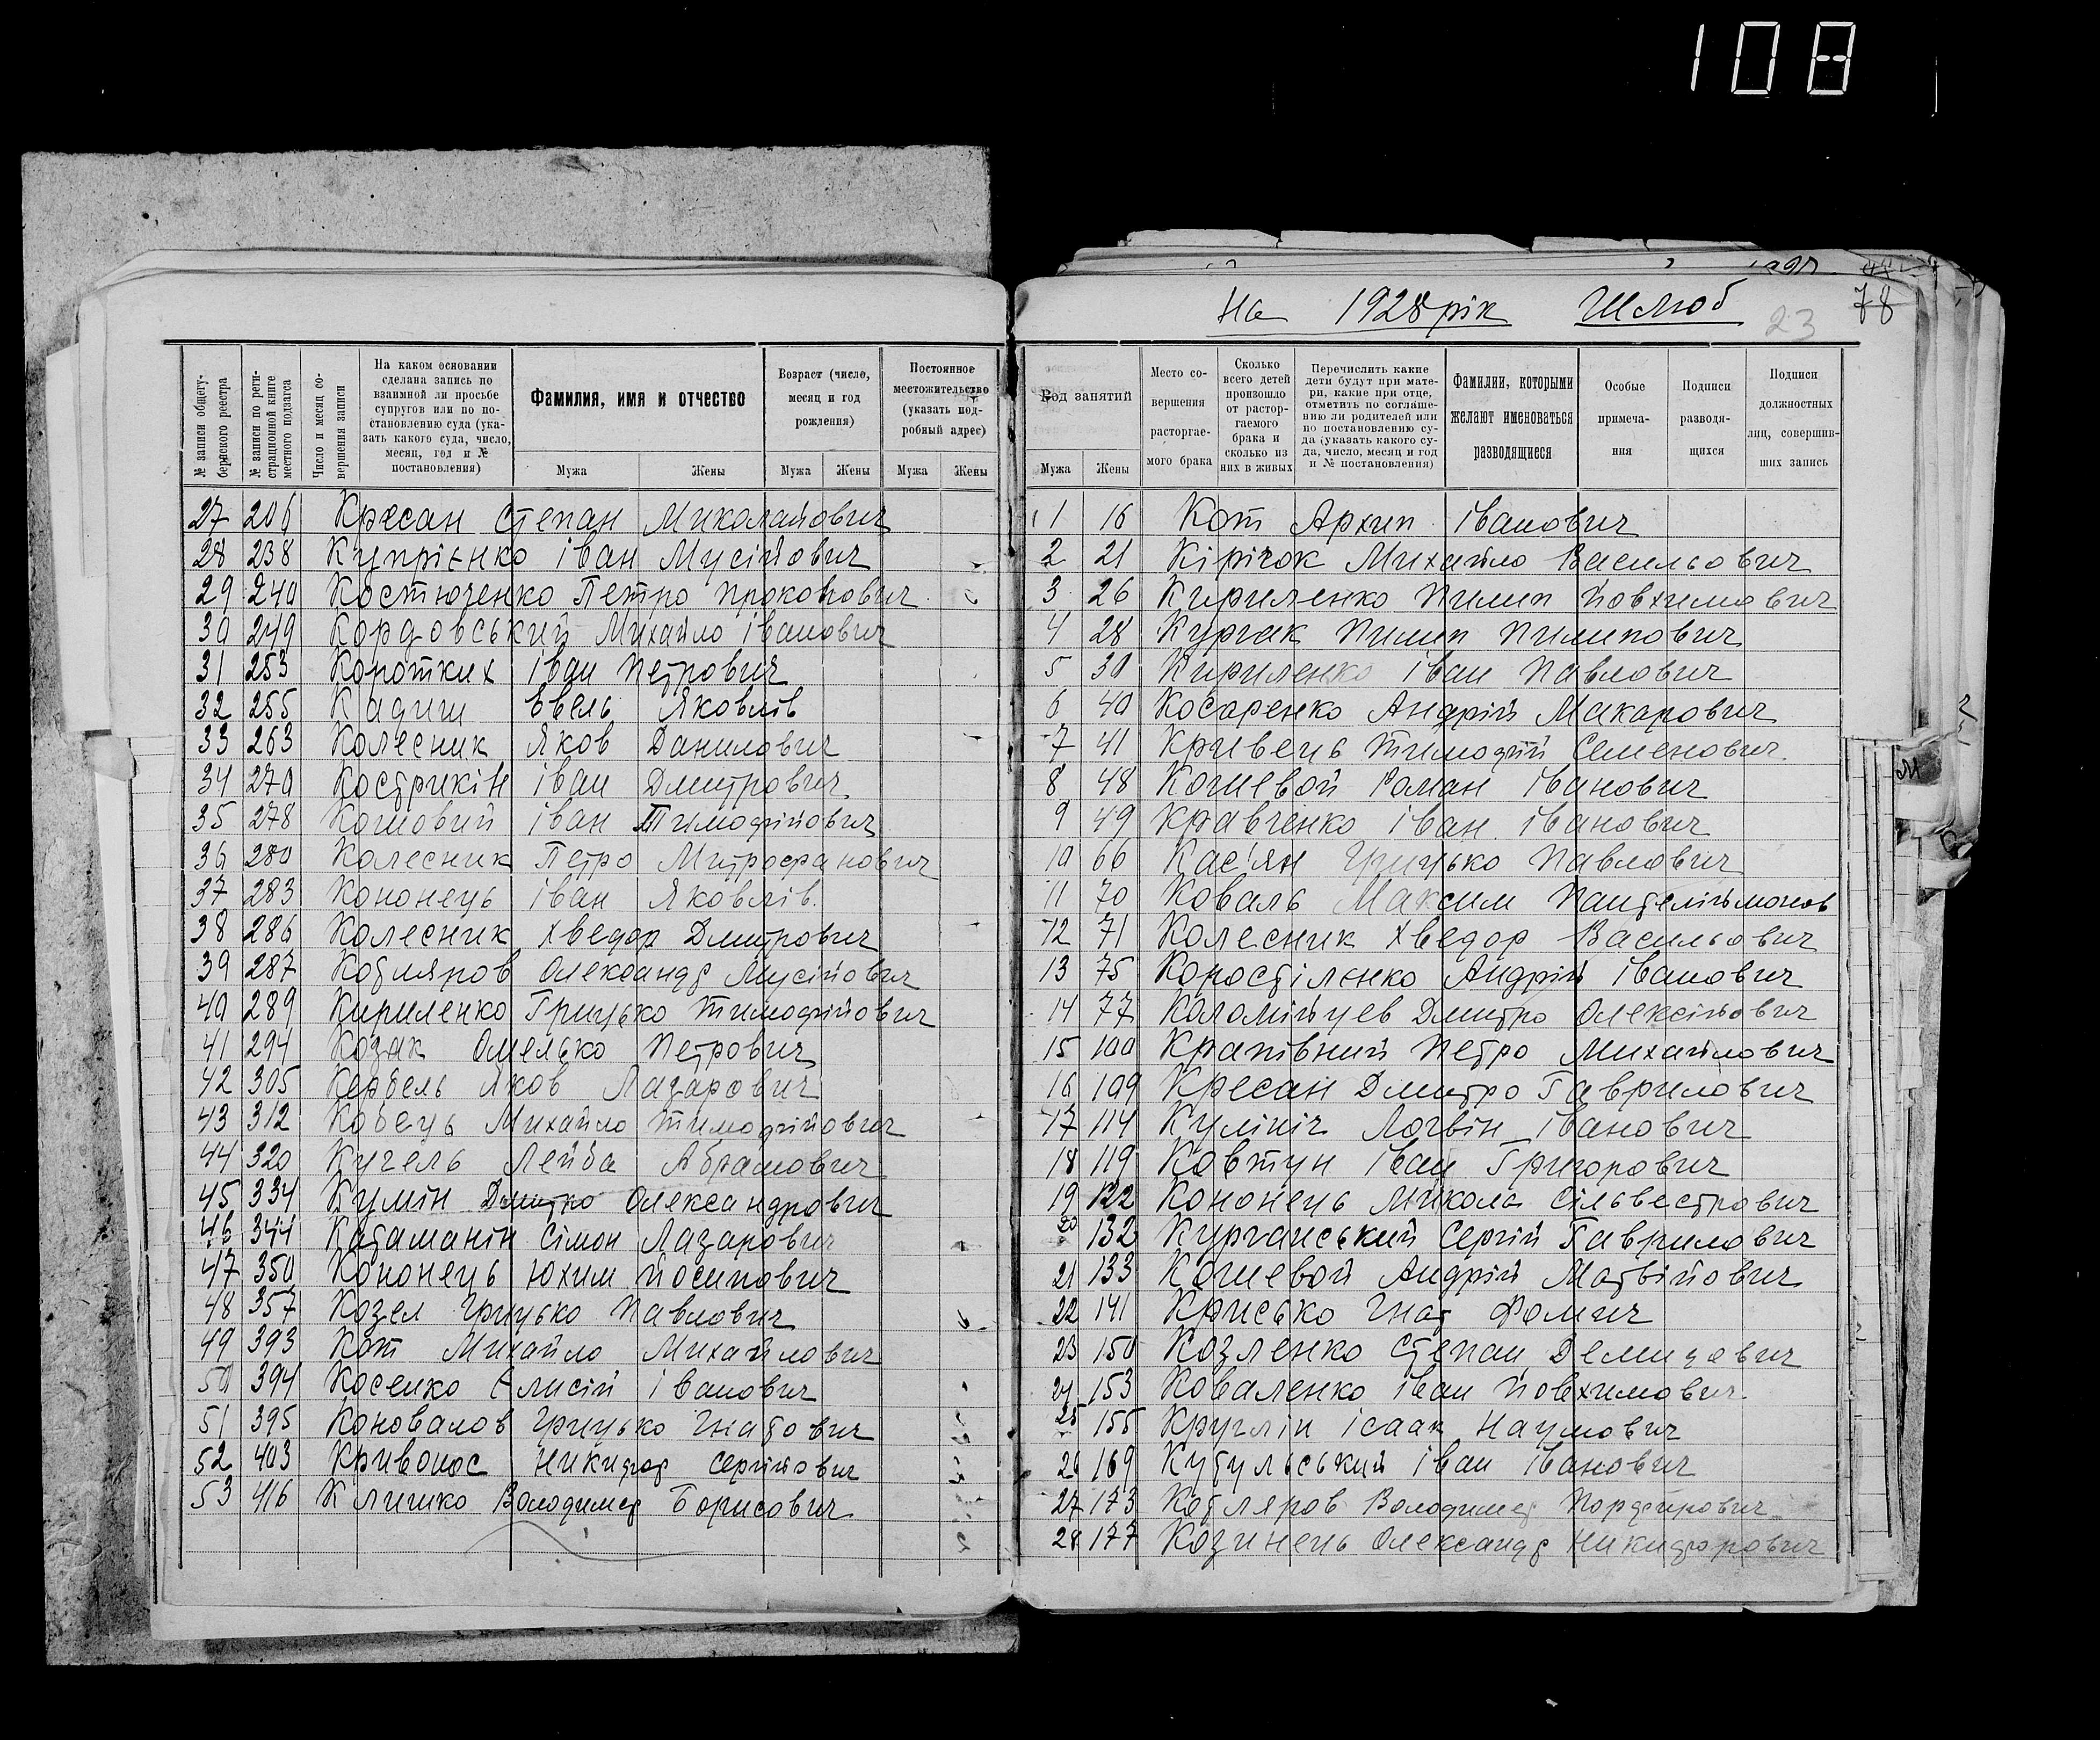 108
На 1928 рік Шлюб
23
78
№ записи общегубернского реестра
№ записи по регистрационной книге местного подзагса
Число и месяц совершения записи
На каком основании сделана запись по взаимной ли просьбе супругов или по постановлению суда (указать какого суда, число, месяц, год и № постановления)
Фамилия, имя и отчество
Мужа Жены
Возраст (число, месяц и год рождения)
Мужа Жены
Постоянное местожительство (указать подробный адрес)
Мужа Жены
27 206 Кресан Степан Миколайович
28 238 Купрієнко Іван Мусійович
29 240 Костюченко Петро Прокопович
30 249 Кордовський Михайло Іванович
31 253 Коротких Іван Петрович
32 255 Кадиш Евель Яковлів
33 263 Колесник Яков Данилович
34 270 Кострикін Іван Дмитрович
35 278 Кошовий Іван Тимофійович
36 280 Колесник Петро Митрофанович
37 283 Кононець Іван Яковлів.
38 286 Колесник Хведор Дмитрович
39 287 Котляров Олександр Мусійович
40 289 Кириленко Грицько Тимофійович
41 294 Козак Омелько Петрович
42 305 Кербель Яков Лазарович
43 312 Кобець Михайло Тимофійович
44 320 Кугель Лейба Абрамович
45 334 Кумін Дмитро Олександрович
46 344 Катаманін Сімон Лазарович
47 350 Кононець Юхим Йосипович
48 357 Козел Грицько Павлович
49 393 Кот Михайло Михайлович
50 394 Косенко Єлисій Іванович
51 395 Коновалов Грицько Гнатович
52 403 Кривонос Никифор Сергійович
53 416 Клишко Володимер Борисович
Код занятий
Мужа Жены
Место совершения расторгаемого брака
Сколько всего детей произошло от расторгаемого брака и сколько из них в живых
Перечислить какие дети будут при матери, какие при отце, отметить по соглашению ли родителей или по постановлению суда (указать какого суда, число, месяц и год и № постановления)
Фамилии, которыми желают именоваться разводящиеся
Особые примечания
Подписи разводящихся
Подписи должностных лиц, совершивших запись
1 16 Кот Архип Іванович
2 21 Кірічок Михайло Васильович
3 26 Кириленко Пилип Йовхимович
4 28 Кургак Пилип Пилипович
5 30 Кириленко Іван Павлович
6 40 Косаренко Андрій Макарович
7 41 Кривець Тимофій Семенович.
8 48 Кошевой Роман Іванович
9 49 Кравченко Іван Іванович
10 66 Кас'ян Грицько Павлович
11 70 Коваль Максим Пантеліймонов
12 71 Колесник Хведор Васильович
13 75 Коростіленко Андрій Іванович
14 77 Коломійцев Дмитро Олексійович
15 100 Крапівний Петро Михайлович
16 109 Кресан Дмитро Гаврилович
17 114 Кулініч Логвін Іванович
18 119 Ковтун Іван Григорович
19 122 Кононець Микола Сільвестрович
20 132 Курганський Сергій Гаврилович
21 133 Кошевой Андрій Матвійович
22 141 Крисько Гнат Фомич
23 150 Козленко Степан Демидович
24 153 Коваленко Іван Йовхимович
25 155 Круглін Ісаак Наумович
26 169 Кутульський Іван Іванович
27 173 Котляров Володимер Порфирович
28 177 Козинець Олександр Никифорович